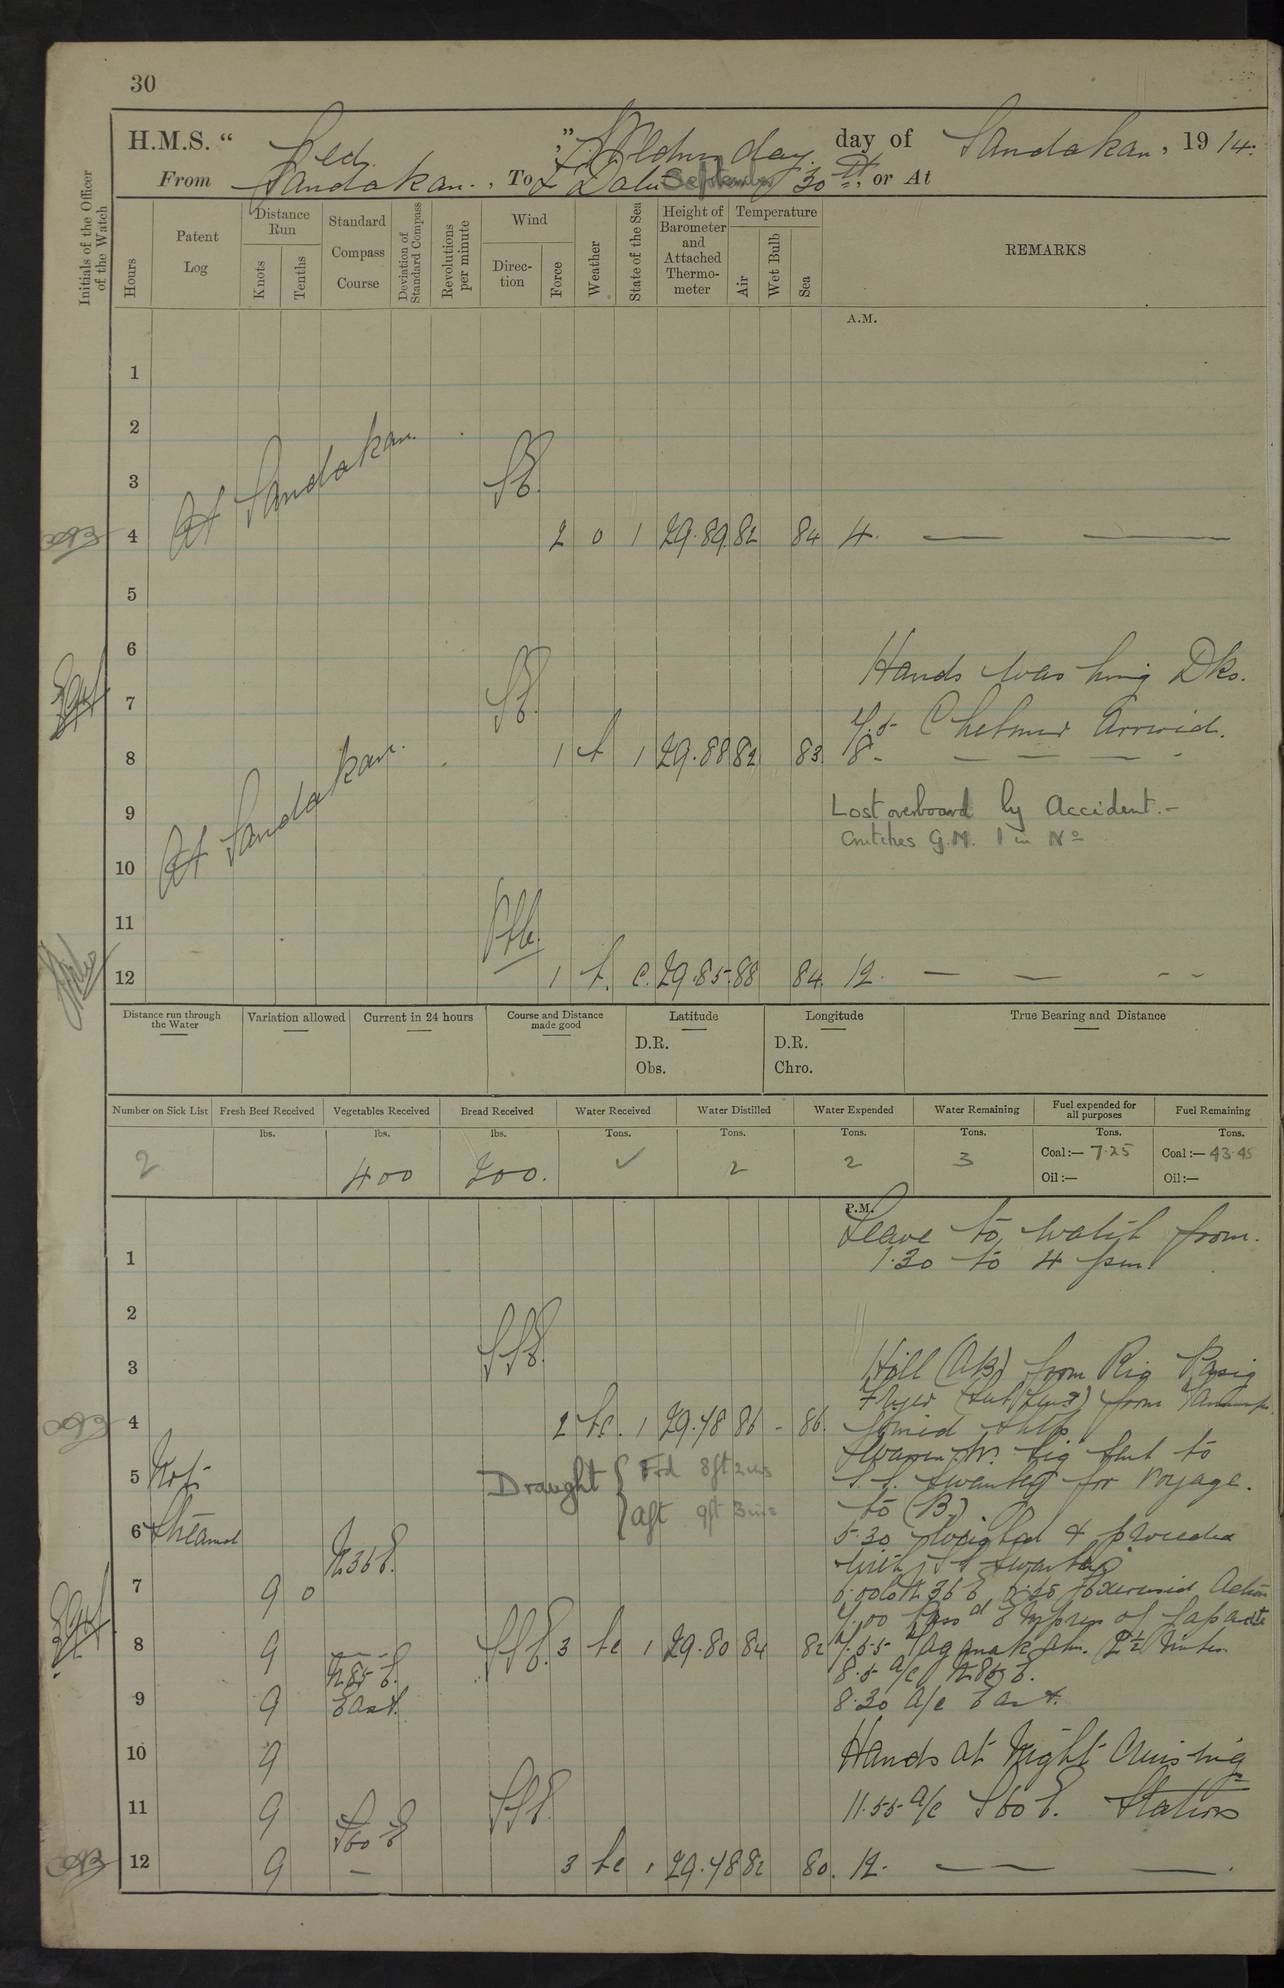 30
H.M.S. " Jed. " Wednesday day of Sandakan, 1914.
From Sandakan., To September 30th, or At
Initials of the Officer of the Watch
Hours
Patent Log
Distance Run
Knots
Tenths
Standard Compass Course
Deviation of Standard Compass
Revolutions per minute
Wind
Direction
Force
Weather
State of the Sea
Height of Barometer and Attached Thermometer
Temperature
Air
Wet Bulb
Sea
REMARKS
A.M.
1
2
3 At Sandakan. SE.
4 2 o 1 29.89 82 84 4.
5
6
Hands washing Dks.
7 SE.
7.5 Chelmer Arrived.
8 1 29.88 82 83 8
Lost overboard by Accident.-
9 At Sandakan.
Crutches G.M. 1 in No
10
11
12 1 c. 29.85 88 84. 12.
Distance run through the Water
Variation allowed
Current in 24 hours
Course and Distance made good
Latitude
D.R.
Obs.
Longitude
D.R.
Chro.
True Bearing and Distance
Number on Sick List
Fresh Beef Received
Vegetables Received
Bread Received
Water Received
Water Distilled
Water Expended
Water Remaining
Fuel expended for all purposes
Fuel Remaining
lbs. lbs. lbs. Tons. Tons. Tons. Tons. Tons. Tons.
2 400 200. ✓ 2 2 3 Coal:— 7.25 Coal:— 43.45
Oil:— Oil:—
P.M.
Leave to watch from.
1
1.30 to 4 pm.
2
3 SSE.
Hill (AB) from Rig
Fryer from
4 2 bc. 1 29.78 86 - 86. Joined ship
sent to
5 Not Draught { Fwd 8ft 2ins
for voyage.
aft 9ft 3ins
to (B.)
6 Steamed
5.30 Weighed & proceeded
N36E.
with
7 9 0
N36E Exercised Action
7.00 Passd Empress of Japan
8 9 SSE. 3 bc 1 29.80 84 82 7.55 Taganak abm. 2½ miles.
N85E.
8.5 a/c N85E.
9 9 East. 8.30 a/c East.
10 9 Hands at Night Cruising
11 9 SSE. 11.55 a/c S60E. Stations
S60E
12 9 — 3 bc 1 29.78 82 80. 12.